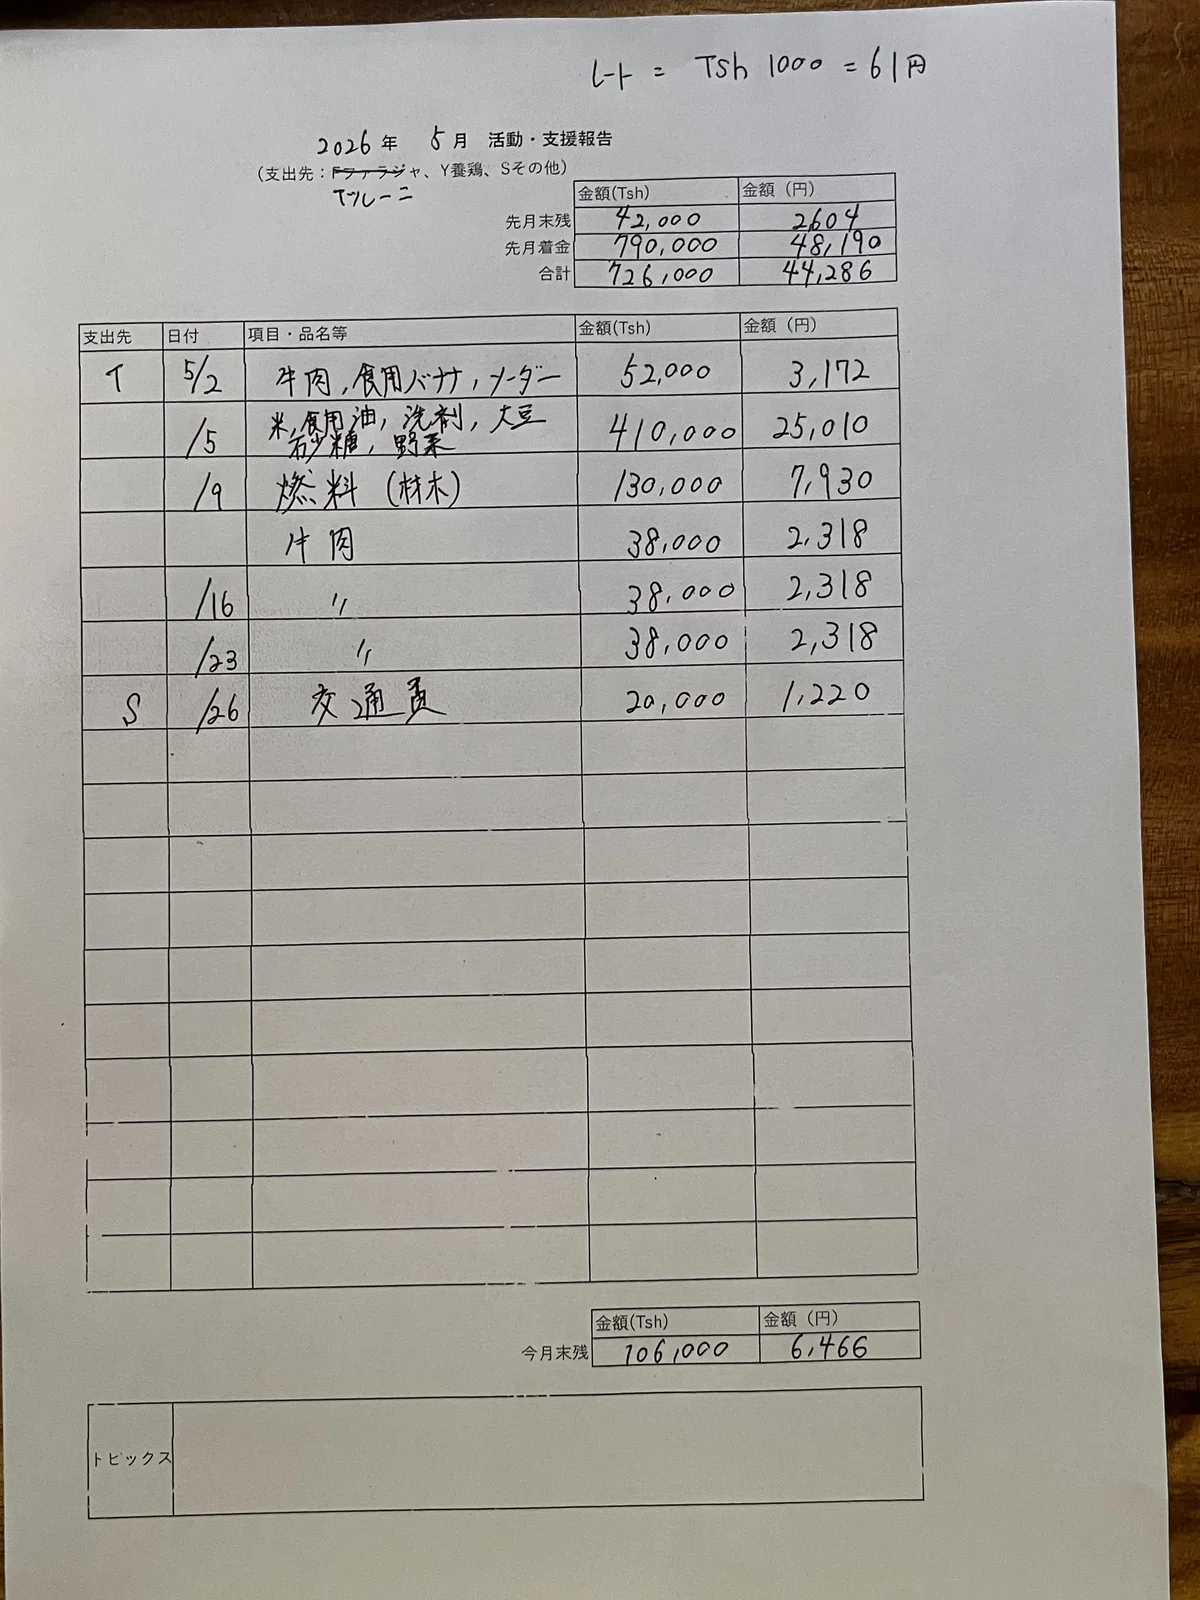 レート = Tsh 1000 = 61円
2026年 5月 活動・支援報告
(支出先：Fファラジャ、Y養鶏、Sその他)
Tツレーニ
金額(Tsh) 金額（円）
先月末残 42,000 2604
先月着金 790,000 48,190
合計 726,000 44,286
支出先 日付 項目・品名等 金額(Tsh) 金額（円）
T 5/2 牛肉,食用バナナ,ソーダー 52,000 3,172
/5 米,食用油,洗剤,大豆 410,000 25,010
砂糖,野菜
/9 燃料(材木) 130,000 7,930
牛肉 38,000 2,318
/16 〃 38,000 2,318
/23 〃 38,000 2,318
S /26 交通費 20,000 1,220
金額(Tsh) 金額（円）
今月末残 106,000 6,466
トピックス